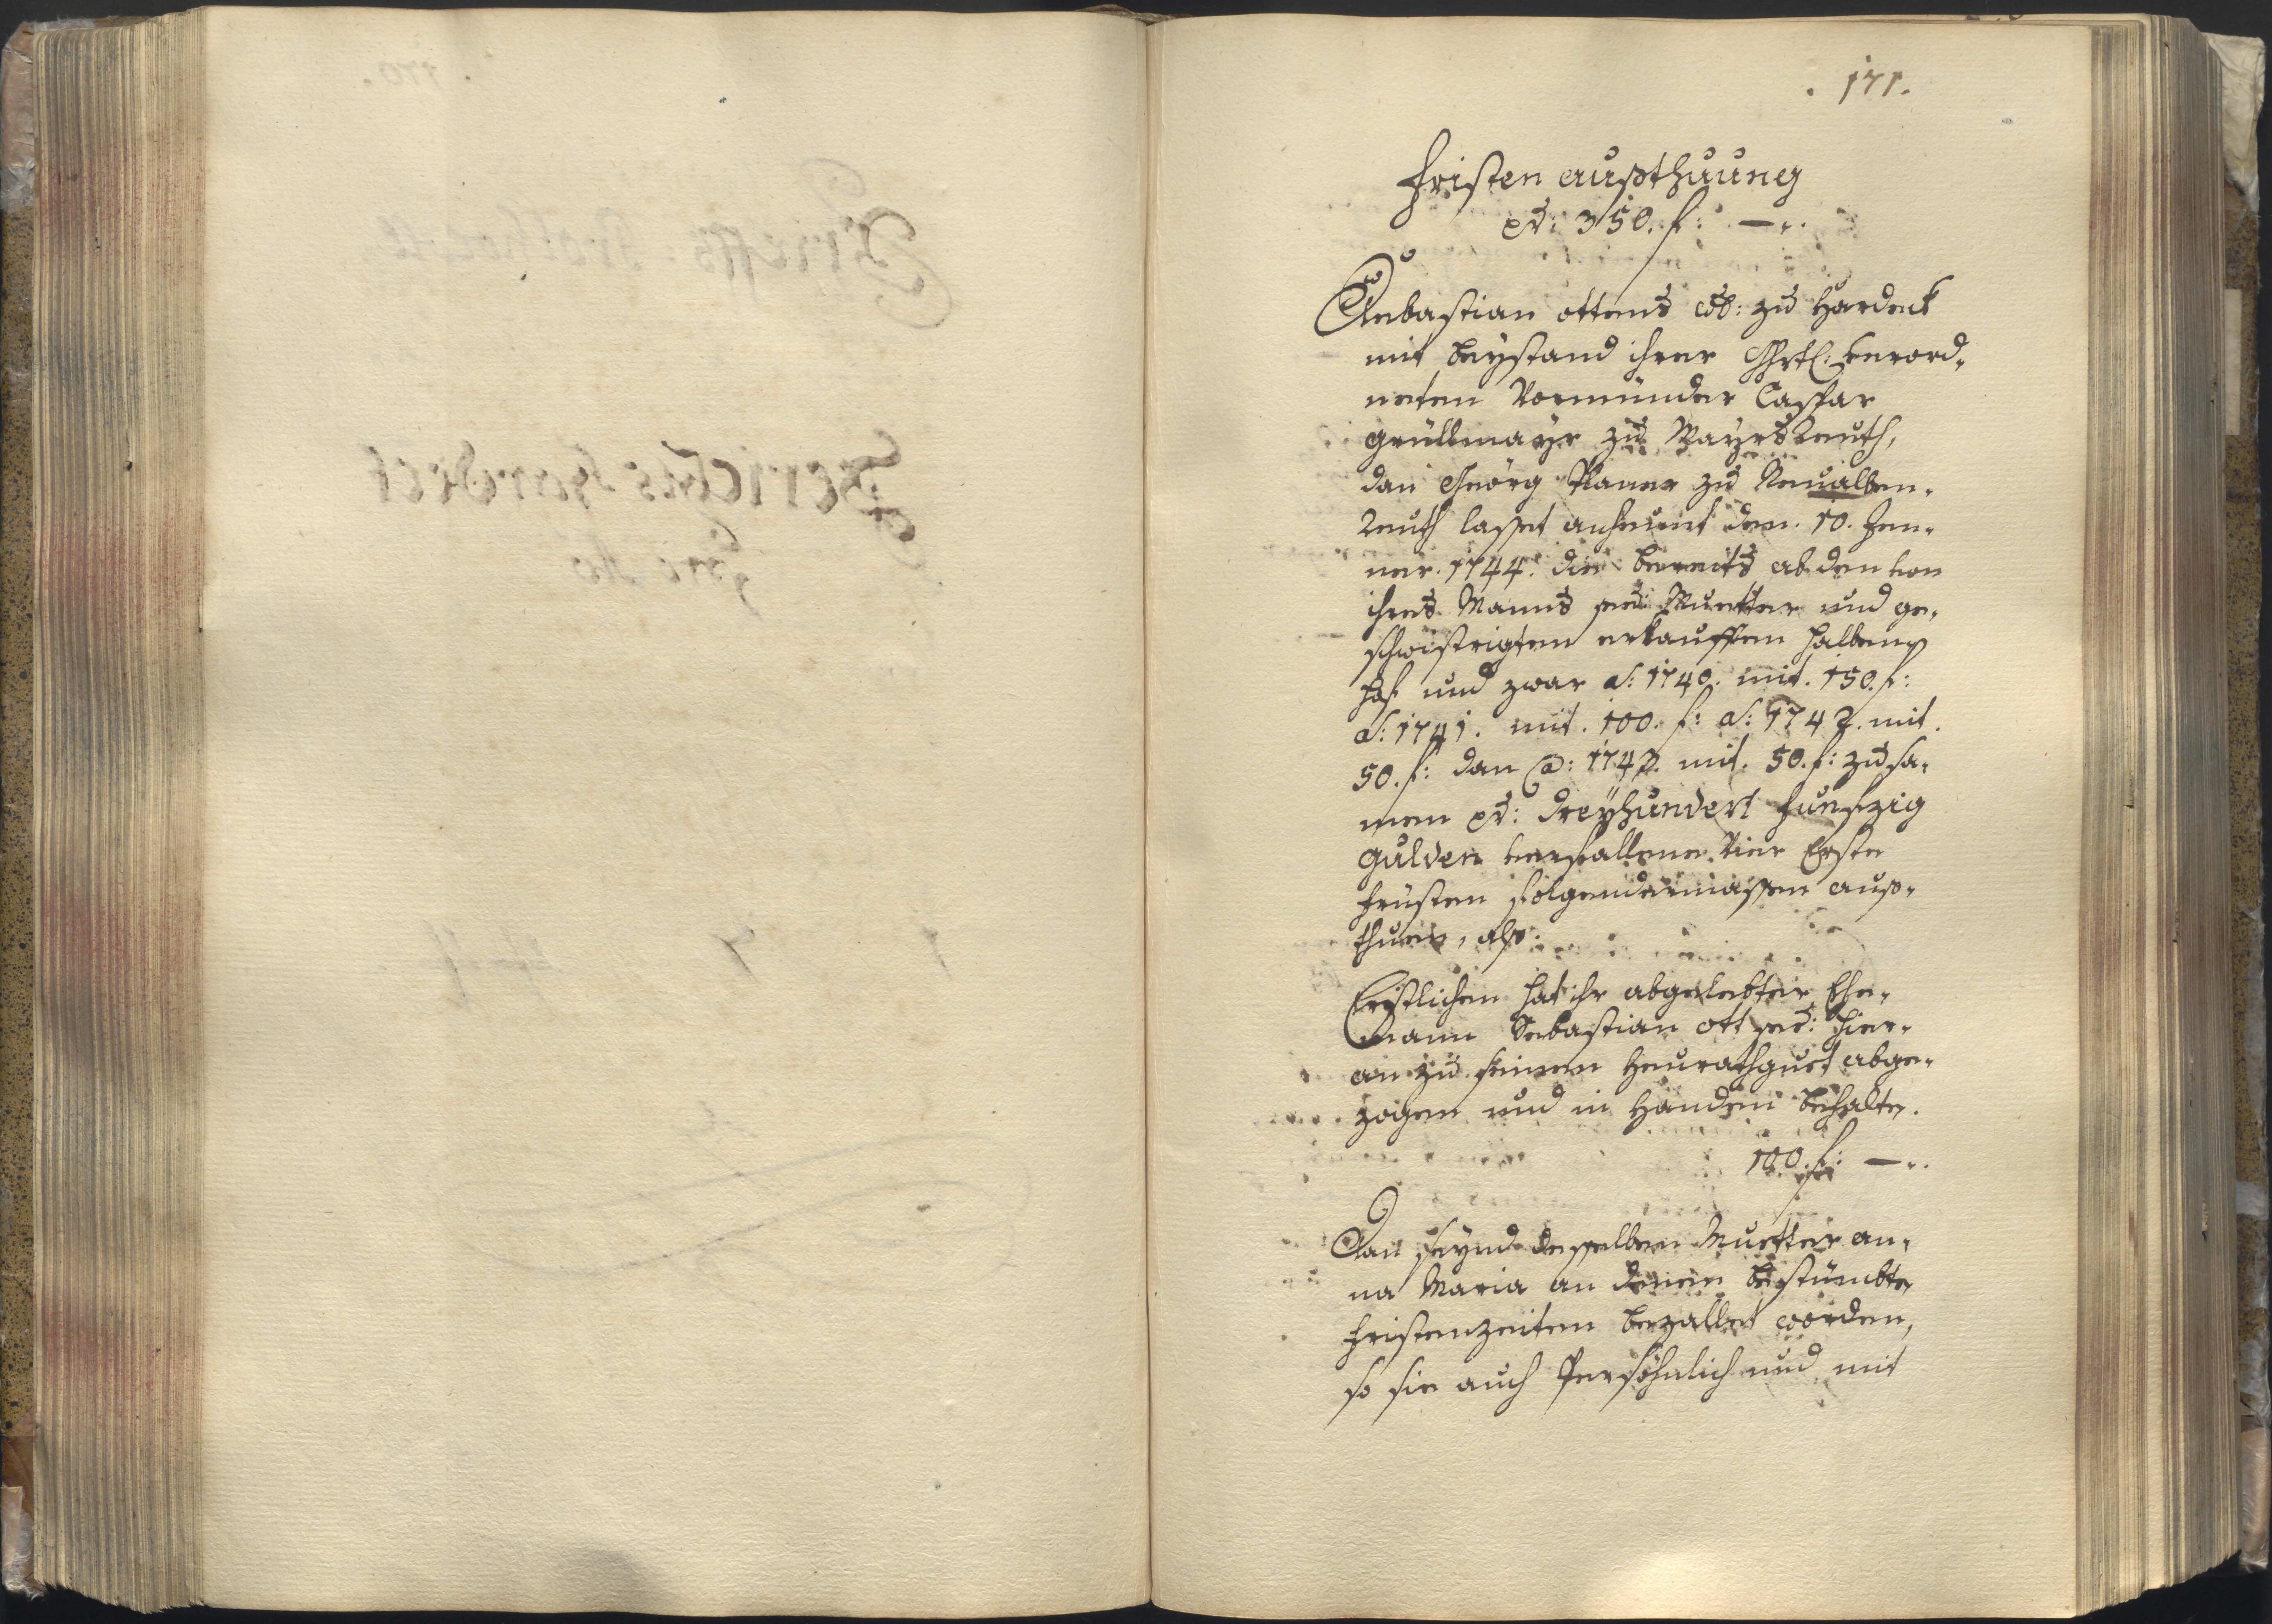 . 171.
Fristen außthuung
pr: 350. f: —..
Sebastian Ottens wb: zu Hardeck
mit beystand ihrer Ghrtl: verord-
neten Vormünder Caspar
Grüllmayr zu Mayrsreuth,
dan Geörg Planer zu Neualben-
reuth lasset anheunt den. 10. Jen-
ner. 1744. die bereits ab den von
ihres Manns seel: Muetter und ge-
schwistrigten erkaufften halben
Hof und zwar a: 1740. mit. 150. f:
a: 1741. mit. 100. f: a: 1742. mit.
50. f: dan a: 1743. mit. 50. f: zusa-
men pr: dreyhundert funfzig
Gulden verfallene Vier Erste
früsten folgendermassen auß-
thuen, als:
Erstlichen hat ihr abgelebter Ehe-
mann Sebastian Ott seel: hier-
an zu seinem Heurathguet abge-
zogen und in Handen behalten.
100. f: —..
Dan seynd desselben Muetter An-
na Maria an denen bestümbten
fristenzeiten bezallet worden,
so sie auch Persöhnlich und mit